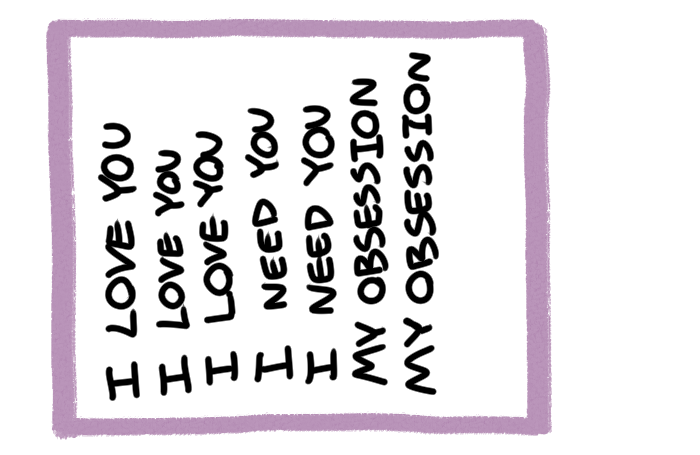 I LOVE YOU
I LOVE YOU
I LOVE YOU
I NEED YOU
I NEED YOU
MY OBSESSION
MY OBSESSION